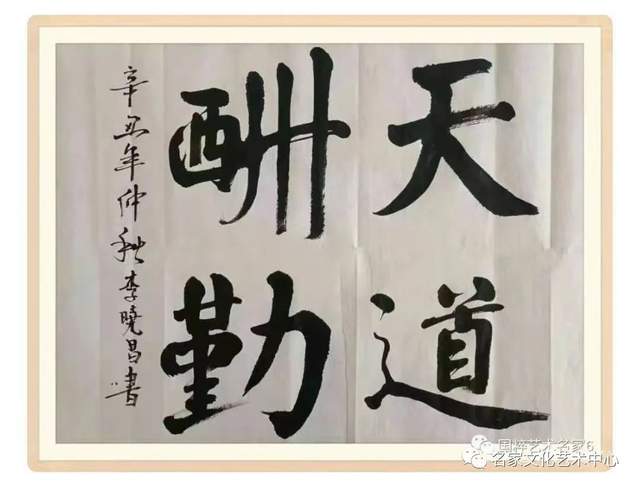 天道
酬勤
辛丑年仲秋李曉昌書
国粹艺术名家6
名家文化艺术中心